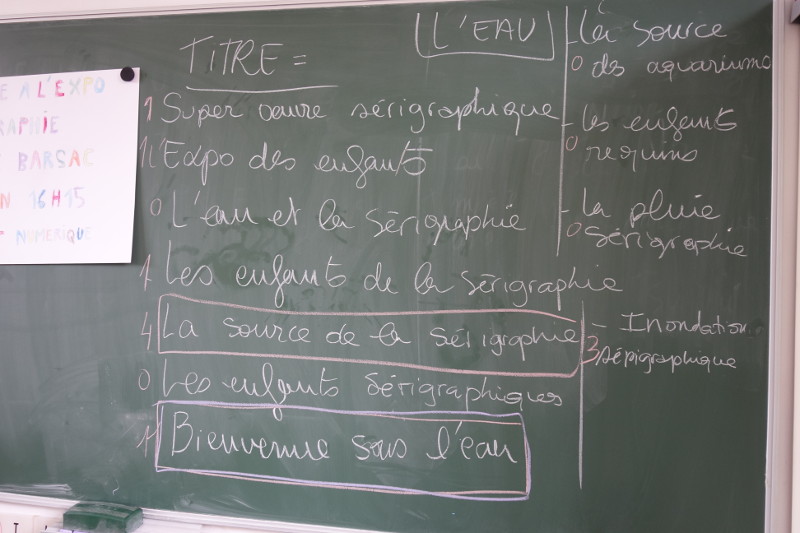 TITRE =
L'EAU
1 Super oeuvre sérigraphique
1 L'Expo des enfants
0 L'eau et la sérigraphie
1 Les enfants de la sérigraphie
4 La source de la sérigraphie
0 Les enfants sérigraphiques
Bienvenue sous l'eau
- La source
0 des aquariums
- les enfants
0 requins
- La pluie
0 sérigraphie
- Inondation
3 sérigraphique
E A L'EXPO
RAPHIE
BARSAC
N 16H15
T NUMERIQUE